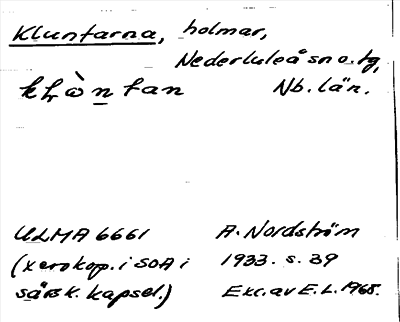 Kluntarna, holmar,
Nederluleå sn o. tg,
Nb. län.
ULMA 6661 A. Nordström
(xerokop. i SOA i 1933. s. 39
särsk. kapsel.) Exc. av E. L. 1968.